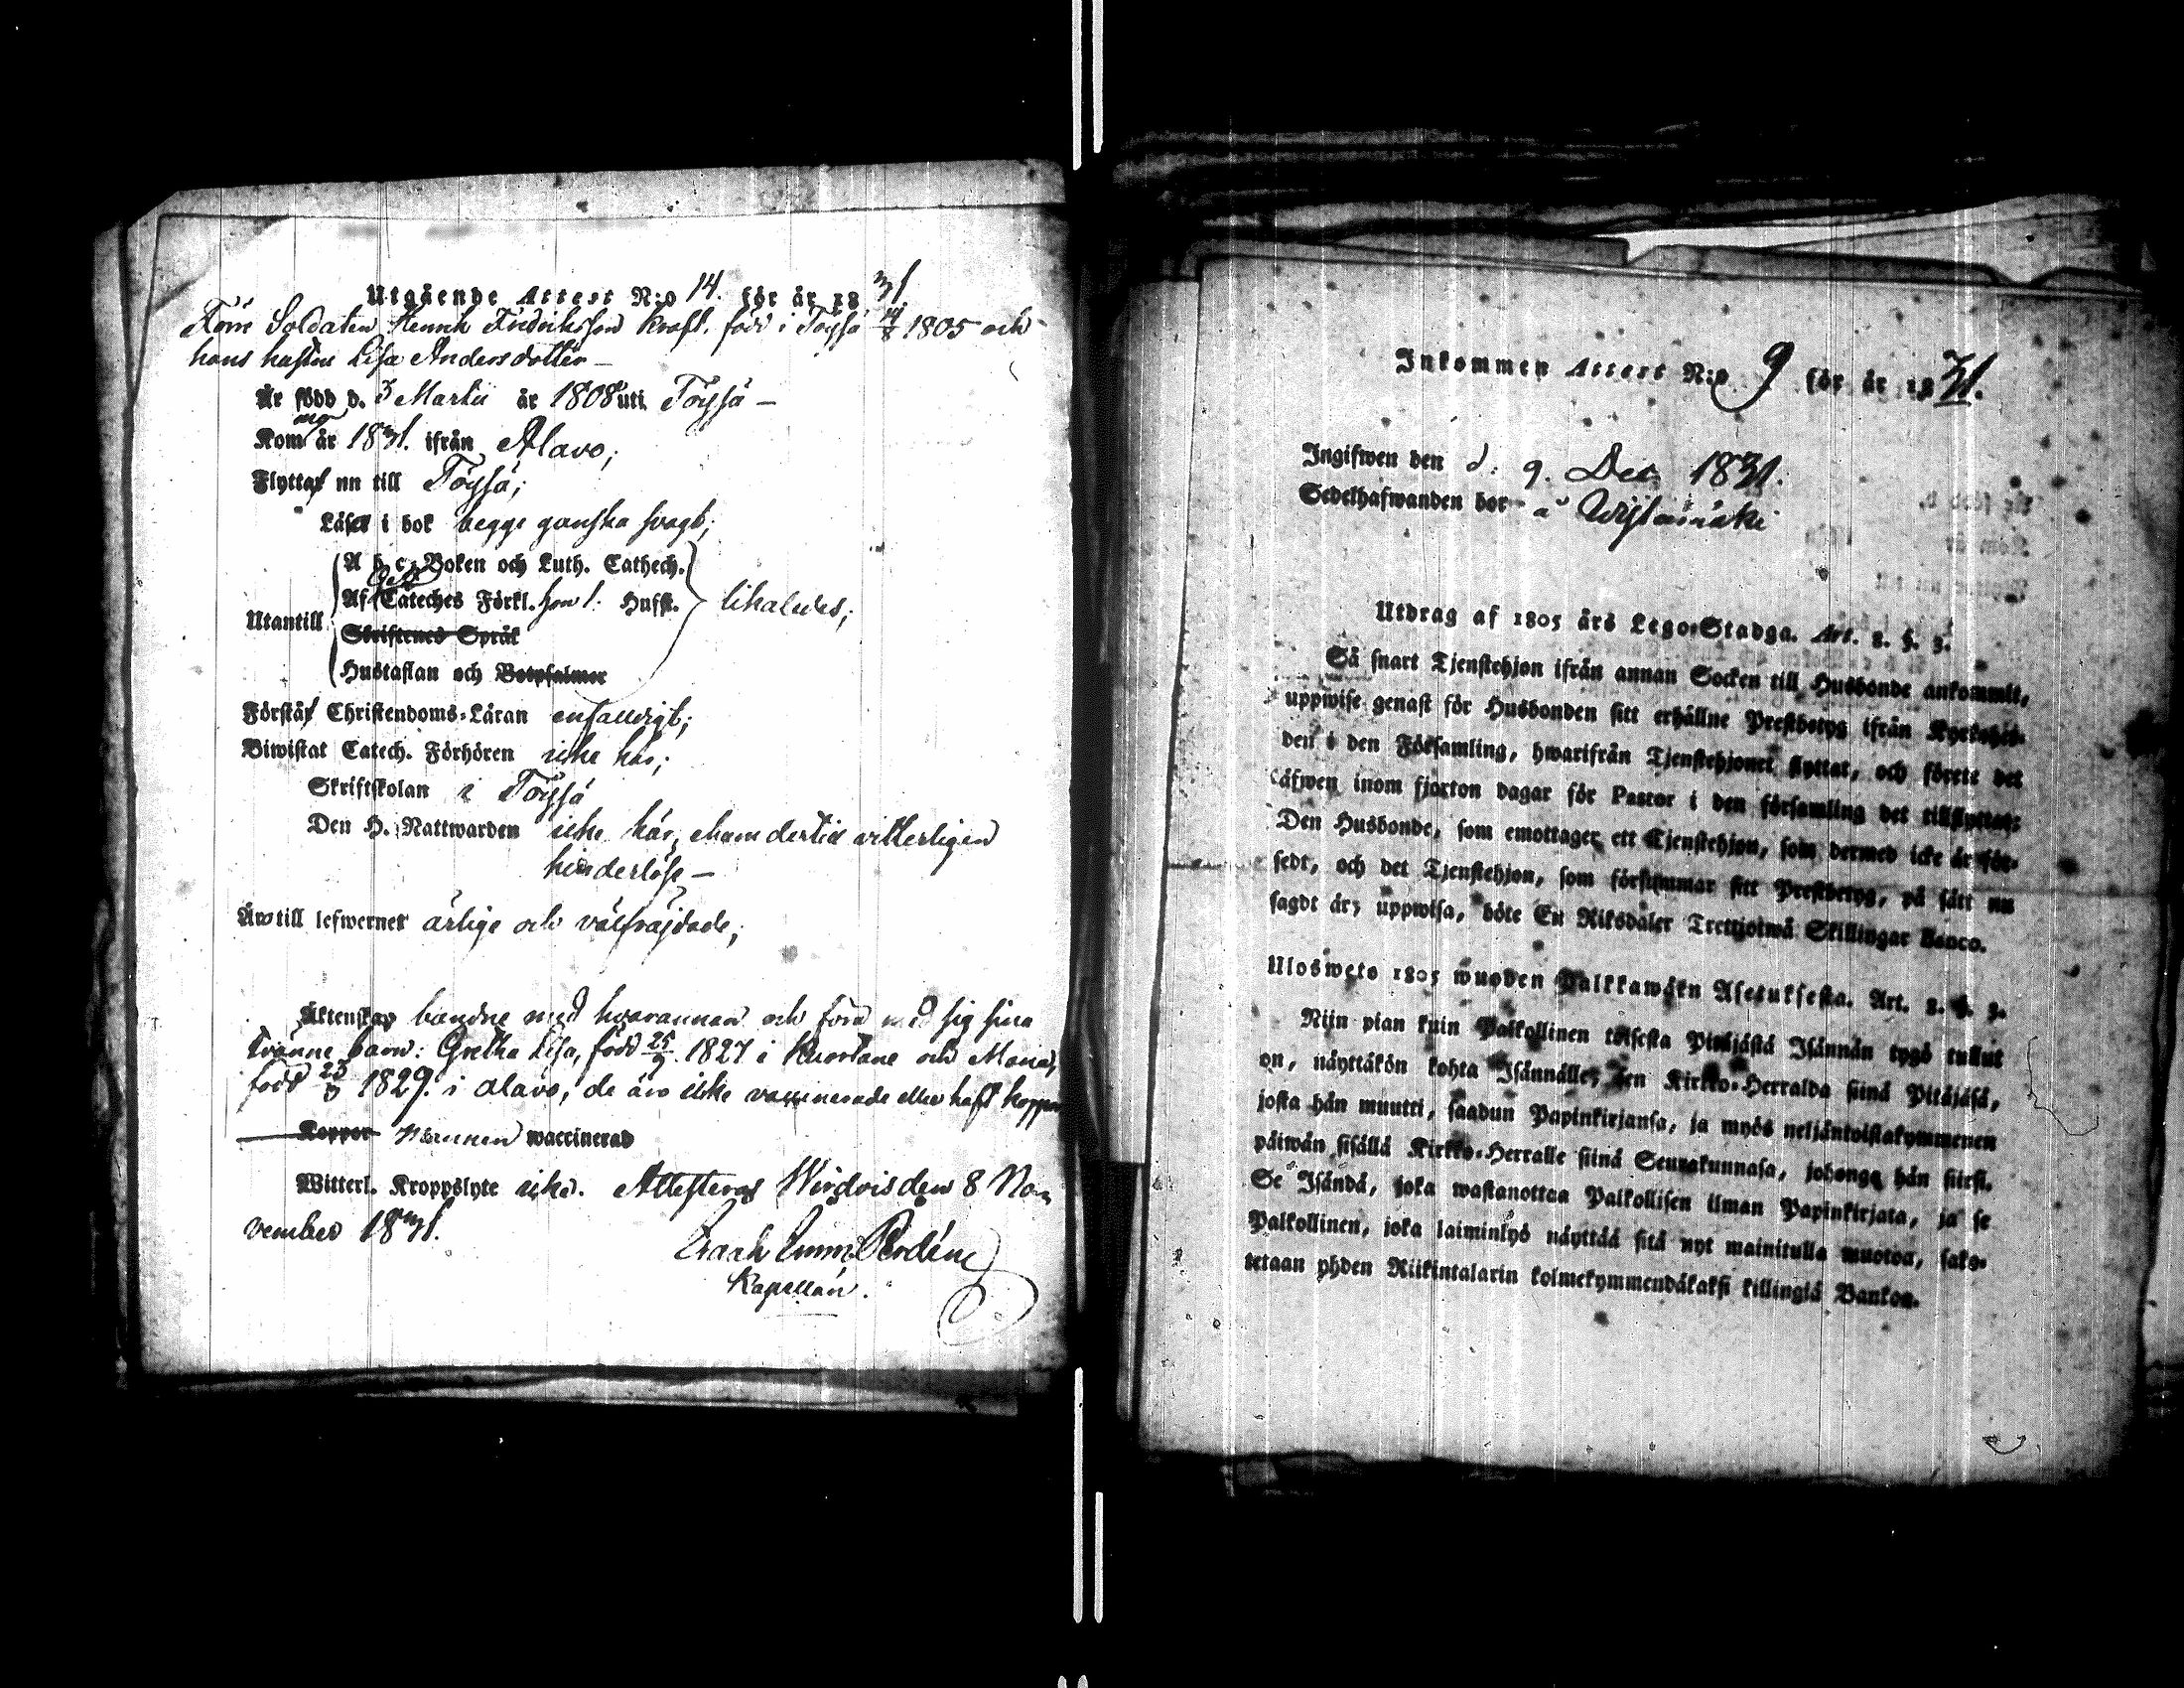 Utgående Attest N:o 14. för år 1831.
Förre Soldaten Henrik Fredriksson Kraft, född i Töysä 14/8 1805 och
hans hustru Lisa Andersdotter —
Är född d. 3 Martii år 1808 uti Töysä —
Kommo år 1831. ifrån Alavo;
Flytta nu till Töysä;
Läsa i bok begge ganska svagt;
A b c-Boken och Luth. Cathech.
Af Cateches Förkl. Husst.
Utantill likaledes;
Skriftenes Språk
Hustaflan och Botpsalmer
Förstå Christendoms-Läran enfaldigt;
Biwistat Catech. Förhören icke här;
Skriftskolan i Töysä
Den H. Nattwarden icke här, ehuru dertill vitterligen
hinderlöse —
Äro till lefwernet ärlige och välfräjdade;
Äktenskap bundne med hvarannan och föra med sig sina
tvänne barn: Gretha Lisa, född 25/9 1827 i Kuortane och Maria,
född 25/3 1829. i Alavo; de äro icke vaccinerade eller haft koppor
Koppor mannen waccinerad
Witterl. Kroppslyte icke. Attesteras Wirdois den 8 No-
vember 1831.
Kapellan.
Inkommen Attest N:o 9 för år 1831.
Ingifwen den d. 9. Dec. 1831.
Sedelhafwanden bor å
Utdrag af 1805 års Lego-Stadga. Art. 2. §. 3.
Så snart Tjenstehjon ifrån annan Socken till Husbonde ankommit,
uppwise genast för Husbonden sitt erhållne Prestbetyg ifrån Kyrkoher-
den i den Församling, hwarifrån Tjenstehjonet flyttat, och förete det
äfwen inom fjorton dagar för Pastor i den församling det tillflyttat;
Den Husbonde, som emottager ett Tjenstehjon, som dermed icke är för-
sedt, och det Tjenstehjon, som försummar sitt Prestbetyg, på sätt nu
sagdt är, uppwisa, böte En Riksdaler Trettjotwå Skillingar Banco.
Ulosweto 1805 wuoden Palkkawäkn Asetuksesta. Art. 2. §. 3.
Niin pian kuin Palkollinen toisesta Pitäjästä Isännän tygö tullut
on, näyttäkön kohta Isännälle, sen Kirkko-Herralda siinä Pitäjäsä,
josta hän muutti, saadun Papinkirjansa, ja myös neljäntoistakymmenen
päiwän sisällä Kirkko-Herralle siinä Seurakunnasa, johonga hän siirsi.
Se Isändä, joka wastanottaa Palkollisen ilman Papinkirjata, ja se
Palkollinen, joka laiminlyö näyttää sitä nyt mainitulla muotoa, sako-
tetaan yhden Riikintalarin kolmekymmendäkaksi killingiä Bankos.